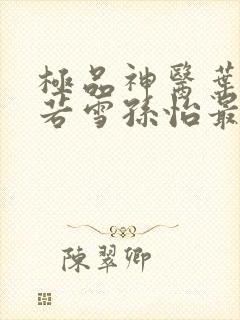 極品神醫葉
若雪孫怡最
陳翠卿